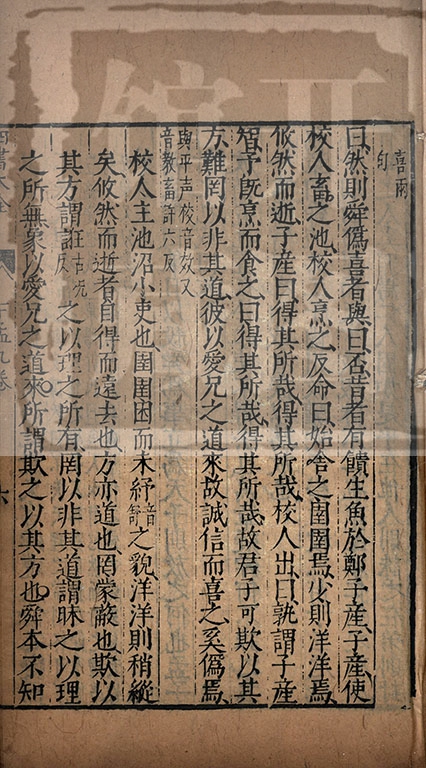 喜爾
句
曰然則舜僞喜者與曰否昔者有饋生魚於鄭子產子產使
校人畜之池校人烹之反命曰始舍之圉圉焉少則洋洋焉
攸然而逝子產曰得其所哉得其所哉校人出曰孰謂子產
智予旣烹而食之曰得其所哉得其所哉故君子可欺以其
方難罔以非其道彼以愛兄之道來故誠信而喜之奚僞焉
與平声校音效又
音教畜許六反
校人主池沼小吏也圉圉困而未紓音舒之貌洋洋則稍縱
矣攸然而逝者自得而遠去也方亦道也罔蒙蔽也欺以
其方謂誑古况反之以理之所有罔以非其道謂昧之以理
之所無象以愛兄之道來所謂欺之以其方也舜本不知
四書大全
下孟九卷
六